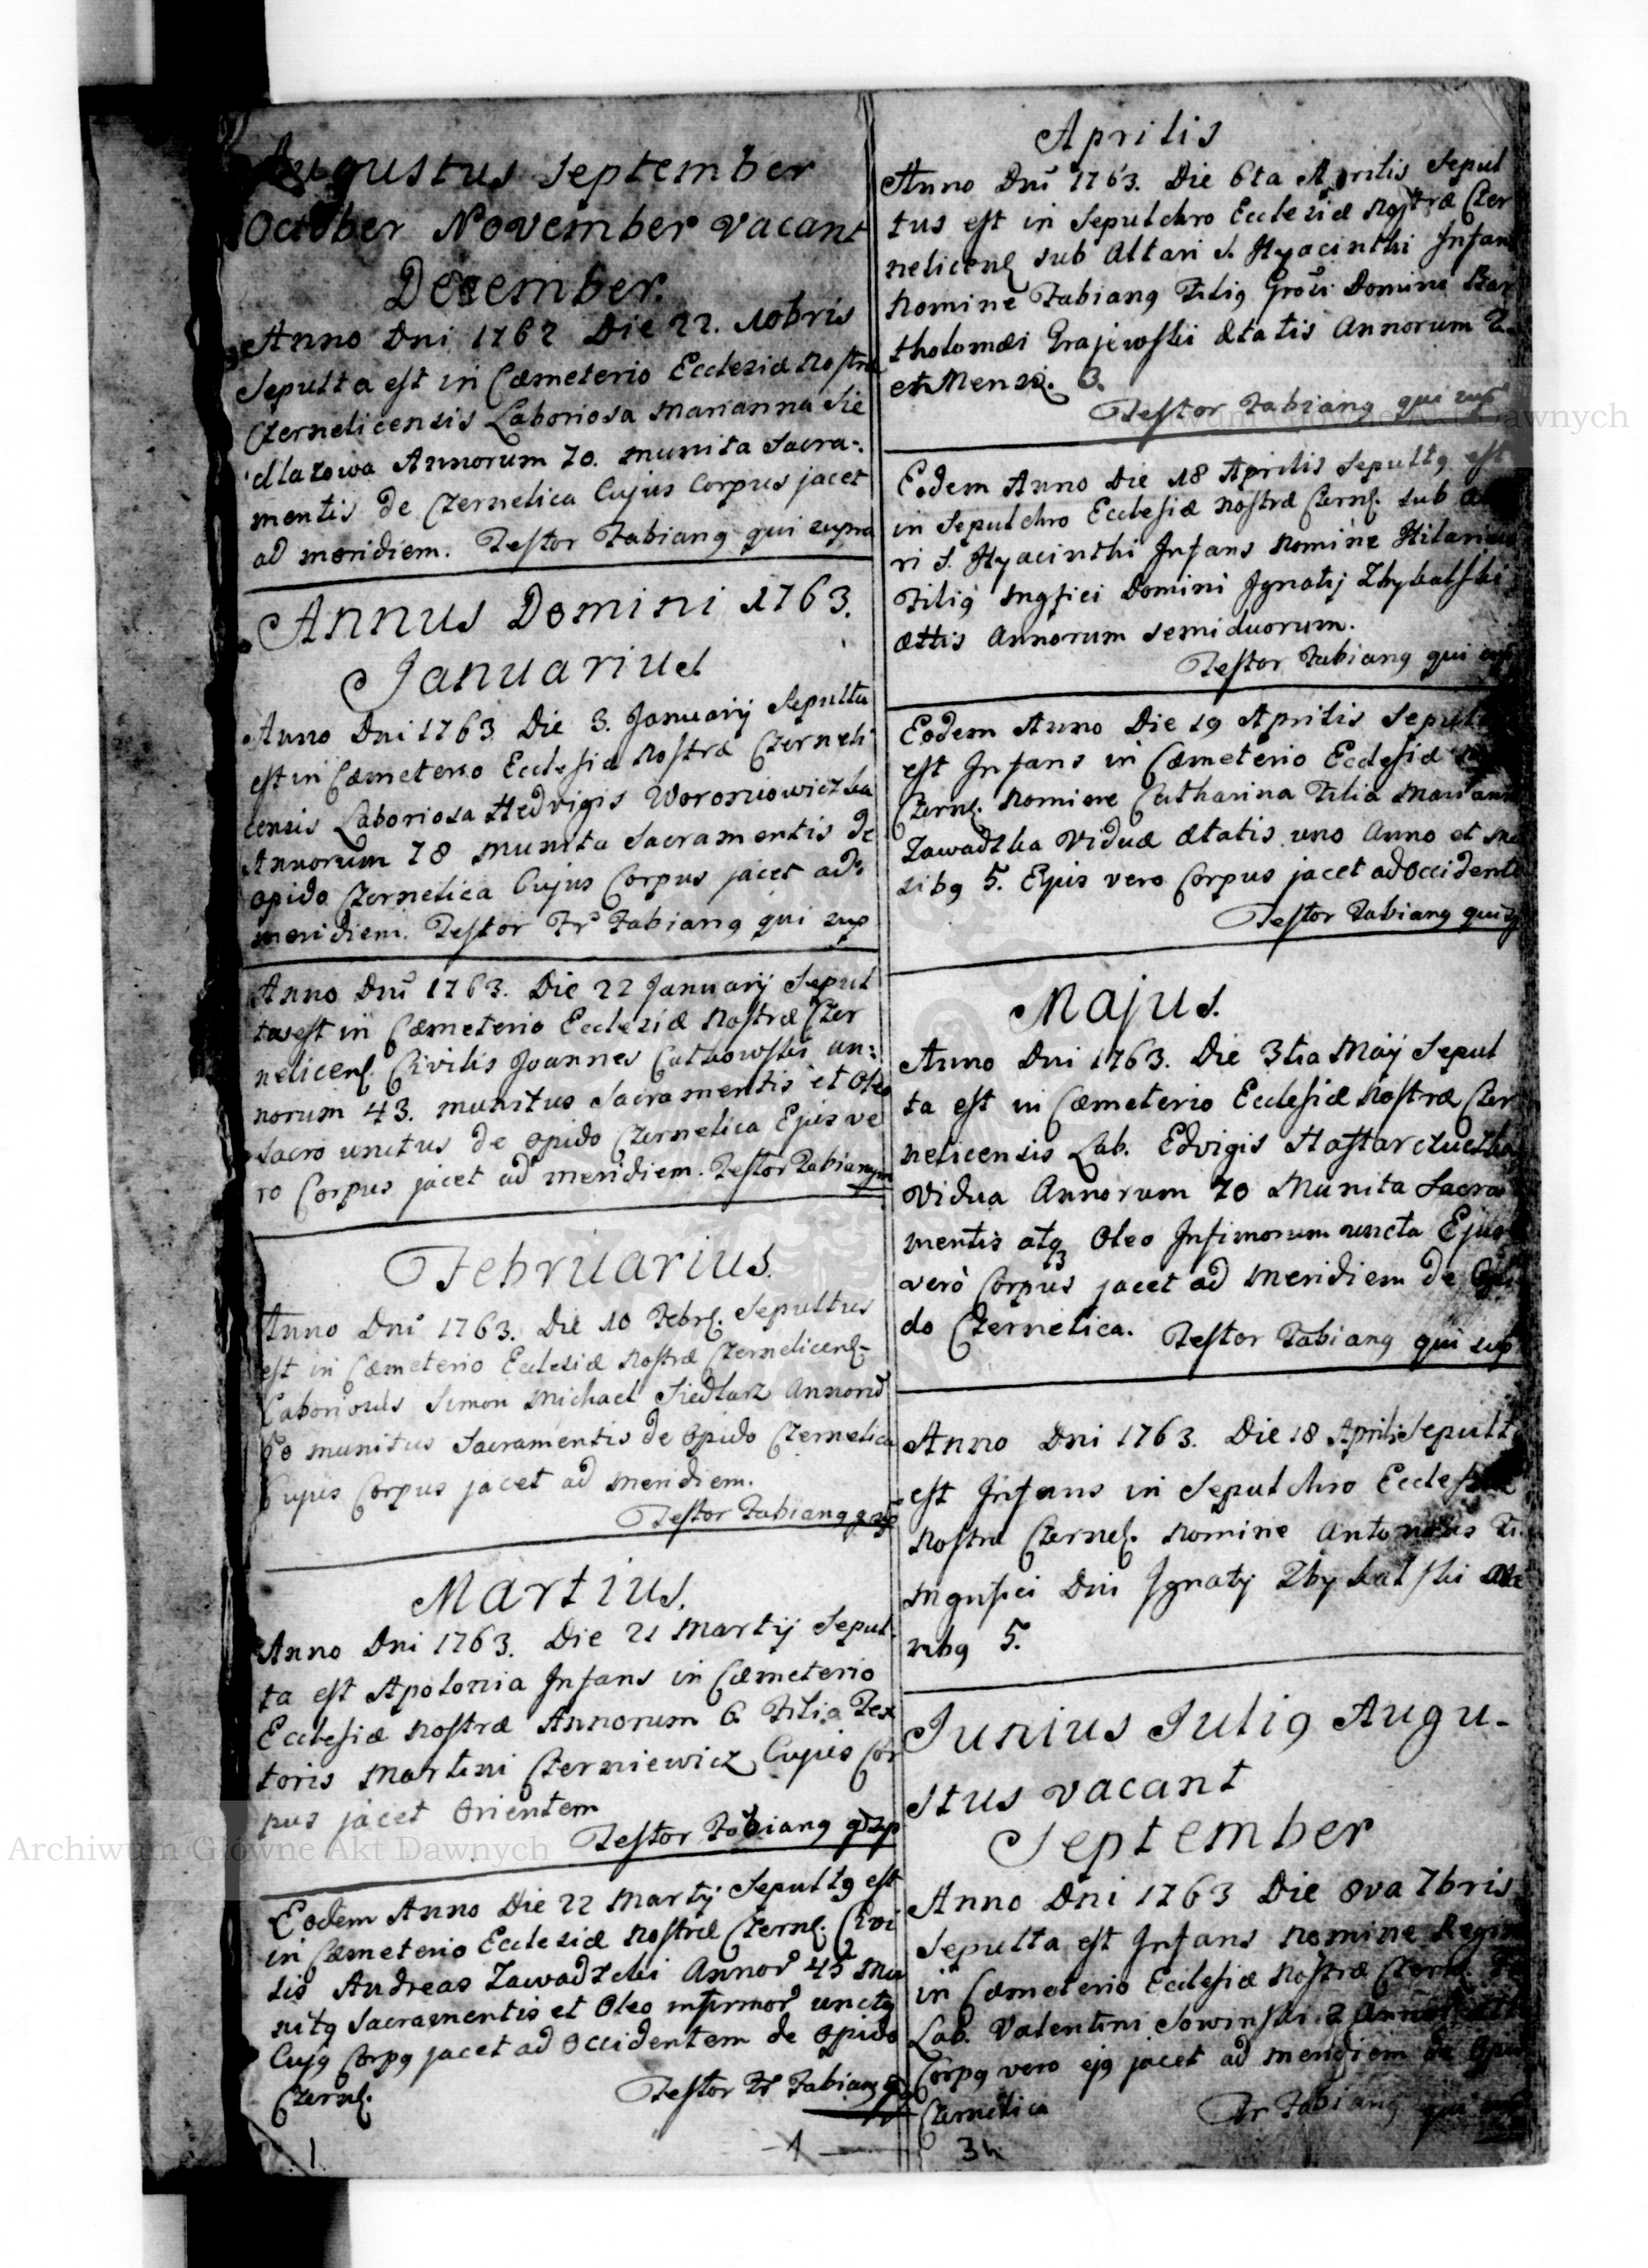 Augustus September
October November vacant
December.
Anno Dni 1762 Die 22. Xobris
Sepulta est in Cæmeterio Ecclesiæ Nostræ
Czernelicensis Laboriosa Marianna Sie
dlazowa Annorum 70. munita Sacra-
mentis de Czernelica Cujus Corpus jacet
ad meridiem. Testor Fabiang qui supra
Annus Domini 1763.
Januarius
Anno Dni 1763 Die 3. Januarij Sepulta
est in Cæmeterio Ecclesiæ Nostræ Czerneli
censis Laboriosa Hedvigis Woroniowiczka
Annorum 78 munita Sacramentis de
opido Czernelica Cujus Corpus jacet ad
meridiem. Testor Fr Fabiang qui sup
Anno Dni 1763. Die 22 Januarij Sepul
tus est in Cæmeterio Ecclesiæ Nostræ Czer
nelicens. Civilis Joannes Cathowski an:
norum 43. munitus Sacramentis et Oleo
Sacro unctus de opido Czernelica Ejus ve
ro Corpus jacet ad meridiem. Testor Fabiang
Februarius.
Anno Dni 1763. Die 10 Febr. Sepultus
est in Cæmeterio Ecclesiæ Nostræ Czernelicens
Laboriosus Simon Michael Siedlarz Annorū
60 munitus Sacramentis de Opido Czernelica
Cujus Corpus jacet ad meridiem.
Testor Fabiang q sup
Martius.
Anno Dni 1763. Die 21 Martij Sepul
ta est Apolonia Infans in Cæmeterio
Ecclesiæ Nostræ Annorum 6 Filia Tex
toris Martini Czerniewicz Cujus Cor
pus jacet Orientem
Testor Fabiang q sup
Eodem Anno Die 22 Martij Sepultg est
in Cæmeterio Ecclesiæ Nostræ Czernel. Civi
lis Andreas Zawadzki Annor 45 Mu
nitg Sacramentis et Oleo infirmor unctg
Cujg Corpg jacet ad Occidentem de opido
Czernel.
Testor Fr Fabiang
1
1
Aprilis
Anno Dni 1763. Die 6ta Aprilis Sepul
tus est in Sepulchro Ecclesiæ Nostræ Czer
nelicens sub Altari S. Hyacinthi Infans
Nomine Fabiang Filig Domini Bar
tholomæi Grajewski ætatis Annorum 2
et Mens. 3.
Testor Fabiang qui sup
Eodem Anno Die 18 Aprilis Sepultg est
in Sepulchro Ecclesiæ Nostræ Czernel. sub
ri S. Hyacinthi Infans Nomine Hilarius
Filig Mgfici Domini Ignatij Zbykalski
ættis Annorum semiduorum.
Testor Fabiang qui sup
Eodem Anno Die 19 Aprilis Sepult
est Infans in Cæmeterio Ecclesiæ
Czernel. Nomine Catharina Filia Mariann
Zawadzka Viduæ ætatis uno Anno et Me
sibg 5. Ejus vero Corpus jacet ad Occidente
Testor Fabiang qui
Majus.
Anno Dni 1763. Die 3tia Maij Sepul
ta est in Cæmeterio Ecclesiæ Nostræ Czer
nelicensis Lab. Edvigis
Vidua Annorum 70 Munita Sacra
mentis atq Oleo Infirmorum uncta Ejus
verò Corpus jacet ad Meridiem de Opi
do Czernelica. Testor Fabiang qui sup
Anno Dni 1763. Die 18 Aprilis Sepult
est Infans in Sepulchro Ecclesiæ
Nostræ Czernel. Nomine Antonius Fi
Mgnfici Dni Ignatij Zbykalski
5.
Junius Julig Augu-
stus vacant
September
Anno Dni 1763 Die 8va 7bris
Sepulta est Infans Nomine Regin
in Cæmeterio Ecclesiæ Nostræ Czernel.
Lab. Valentini Sowinski 2
Corpg vero ejg jacet ad meridiem de Opi
Czernelica
Fr Fabiang qui sup
Archiwum Główne Akt Dawnych
Archiwum Główne Akt Dawnych